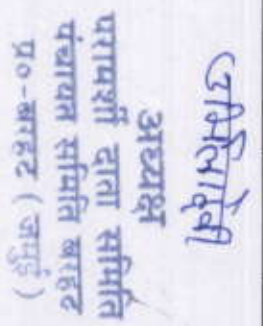 उर्मिला देवी
अध्यक्ष
परामर्शी दाता समिति
पंचायत समिति बरहट
प्र०-बरहट ( जमुई )